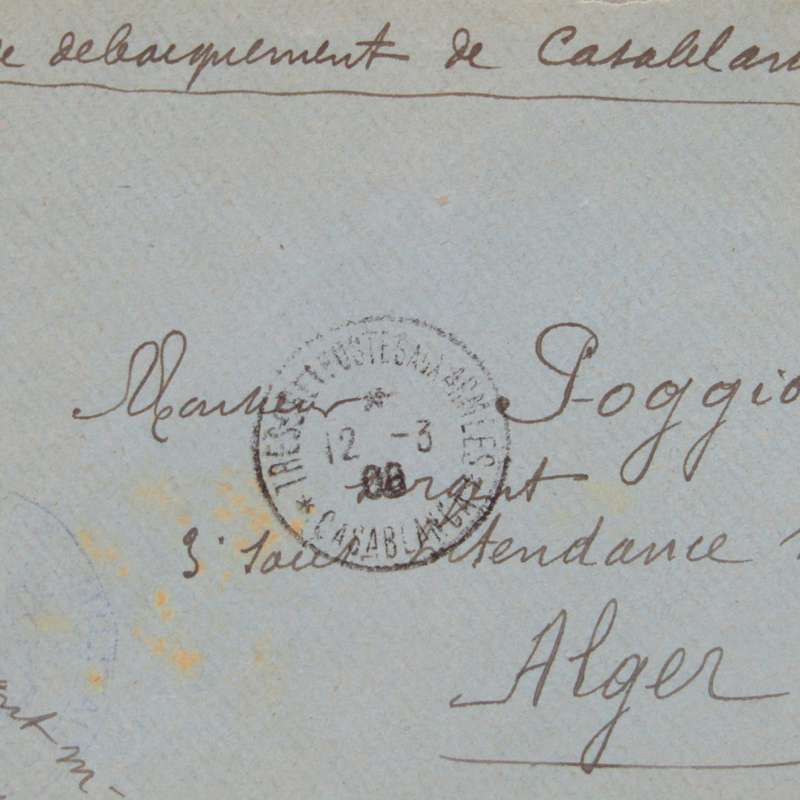 debarquement de Casablan
Monsieur Poggio
TRESOR ET POSTES AUX ARMEES
12 -3
08
* CASABLANCA *
sergent
3e Sous Intendance
Alger